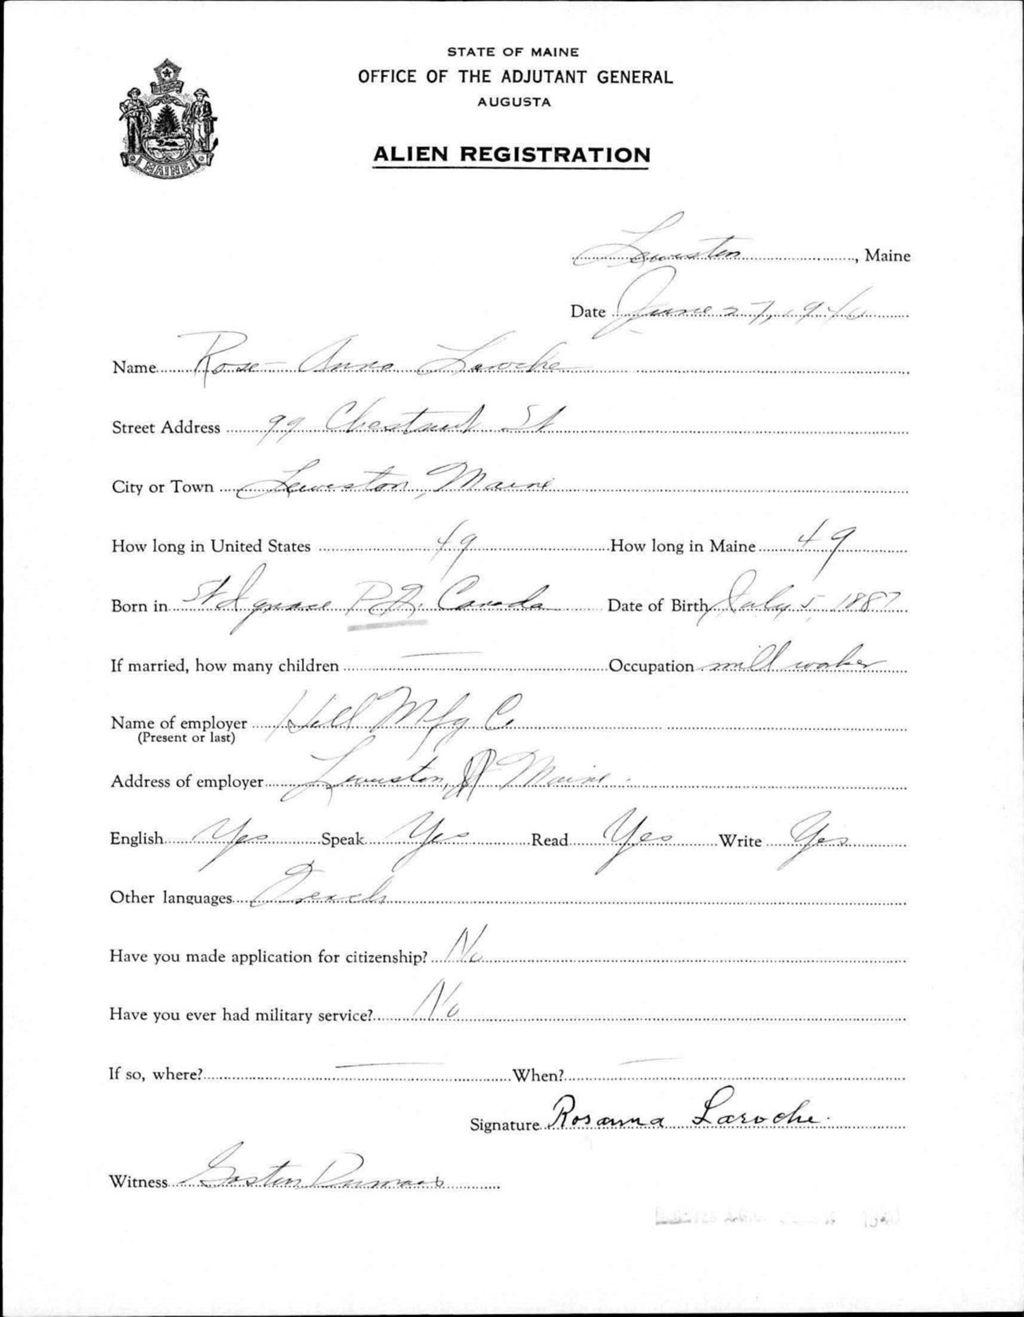 STATE OF MAINE
OFFICE OF THE ADJUTANT GENERAL
AUGUSTA
ALIEN REGISTRATION
MAINE
Lewiston, Maine
Date June 27, 1940
Name Rose-Anna Laroche
Street Address 99 Chestnut St
City or Town Lewiston, Maine
How long in United States 49 How long in Maine 49
Born in St Ignace P.Q. Canada Date of Birth July 5, 1887
If married, how many children — Occupation mill worker
Name of employer Hill Mfg Co
(Present or last)
Address of employer Lewiston, Maine.
English Yes Speak Yes Read Yes Write Yes
Other languages French
Have you made application for citizenship? No
Have you ever had military service? No
If so, where? — When? —
Signature Rosanna Laroche.
Witness Gaston Dumais